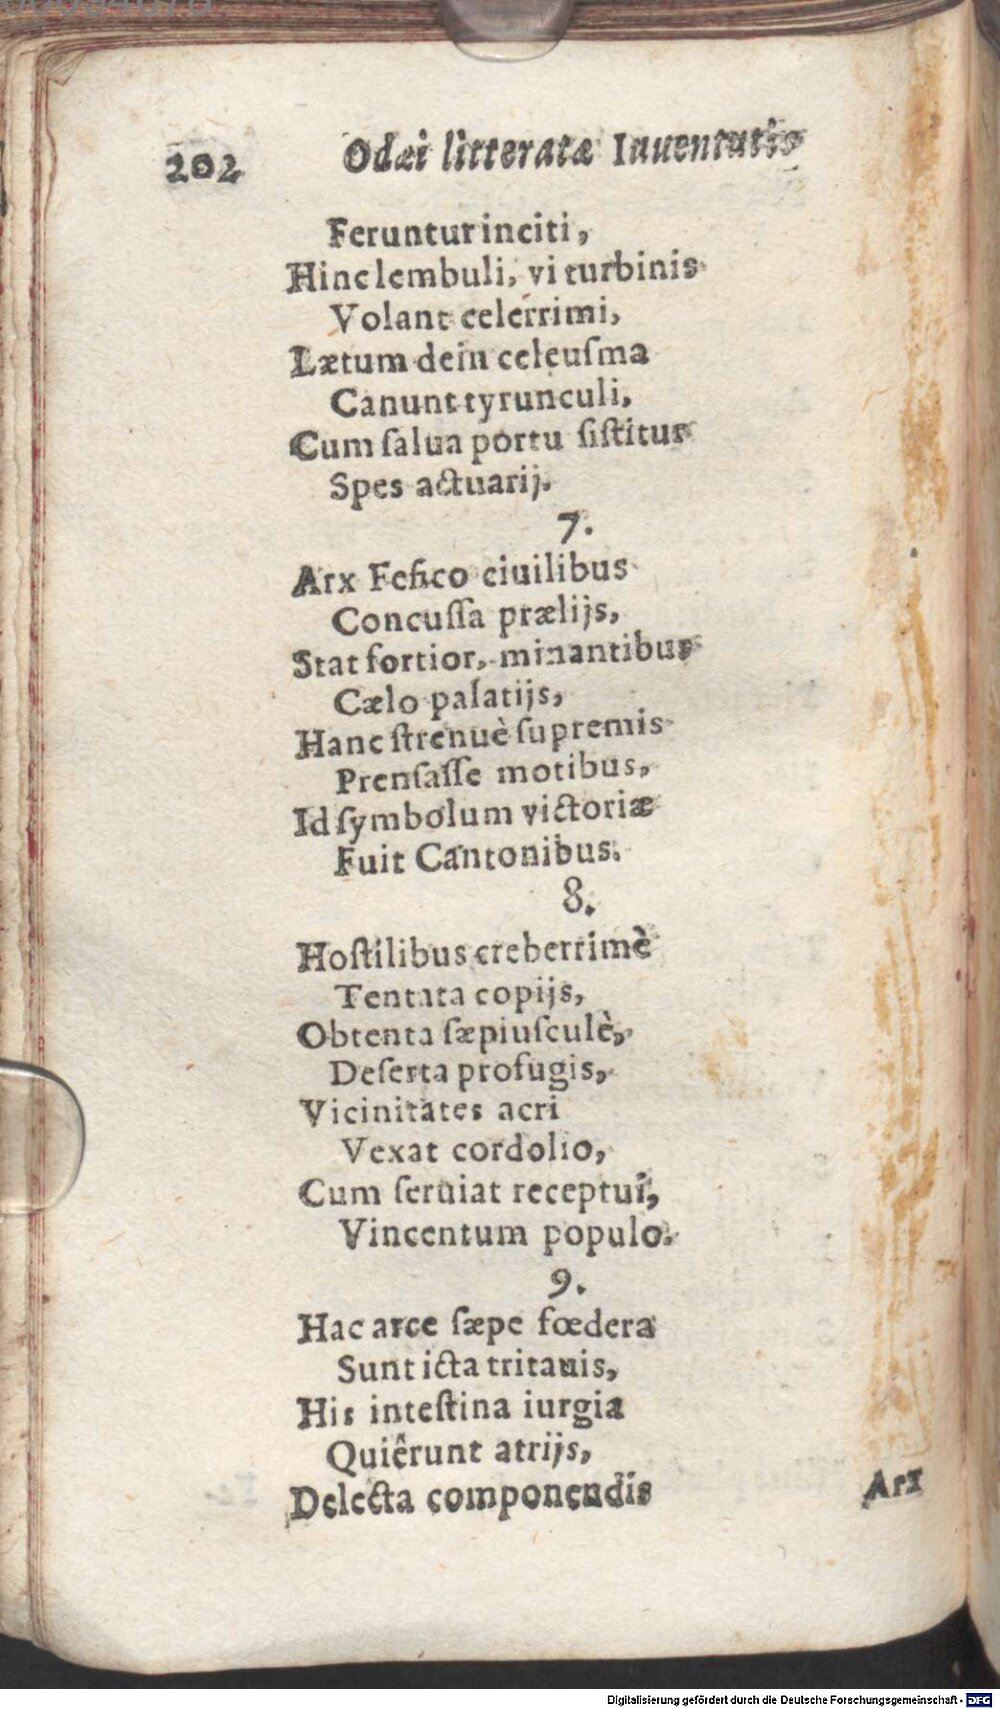 202 Odæi litteratæ Iuuentutis
Feruntur inciti,
Hinc lembuli, vi turbinis
Volant celerrimi,
Lætum dein celeuſma
Canunt tyrunculi,
Cum ſalua portu ſiſtitur
Spes actuarij.
7.
Arx Feſico ciuilibus
Concuſſa prælijs,
Stat fortior, minantibus
Cælo palatijs,
Hanc ſtrenuè ſupremis
Prenſaſſe motibus,
Id ſymbolum victoriæ
Fuit Cantonibus.
8.
Hoſtilibus creberrimè
Tentata copijs,
Obtenta ſæpiuſculè,
Deſerta profugis,
Vicinitates acri
Vexat cordolio,
Cum ſeruiat receptui,
Vincentum populo.
9.
Hac arce ſæpe fœdera
Sunt icta tritauis,
His inteſtina iurgia
Quiêrunt atrijs,
Delecta componendis
Arx
Digitalisierung gefördert durch die Deutsche Forschungsgemeinschaft - DFG